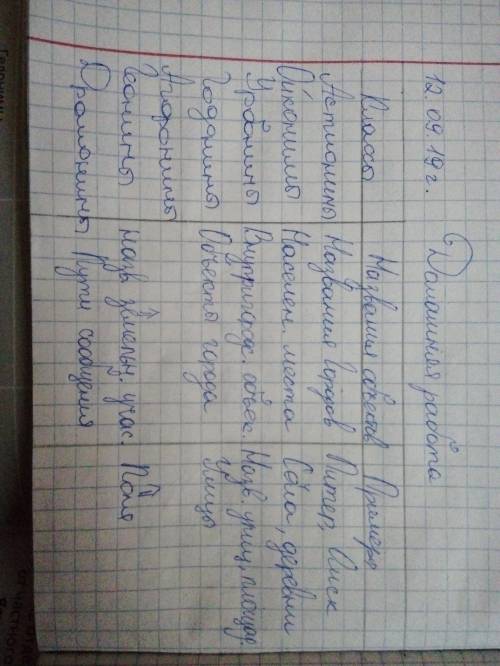 12.09.19г.
Домашняя работа
Классы Названия объектов Примеры
Астионимы Названия городов Питер,
Ойконимы Населен. места Сёла, деревни
Урбонимы Внутригород. объек. Назв. улиц, площад.
Годонимы Объекты города Улицы
Агроонимы
назв земельн. учас. Поля
Дромонимы Пути сообщения